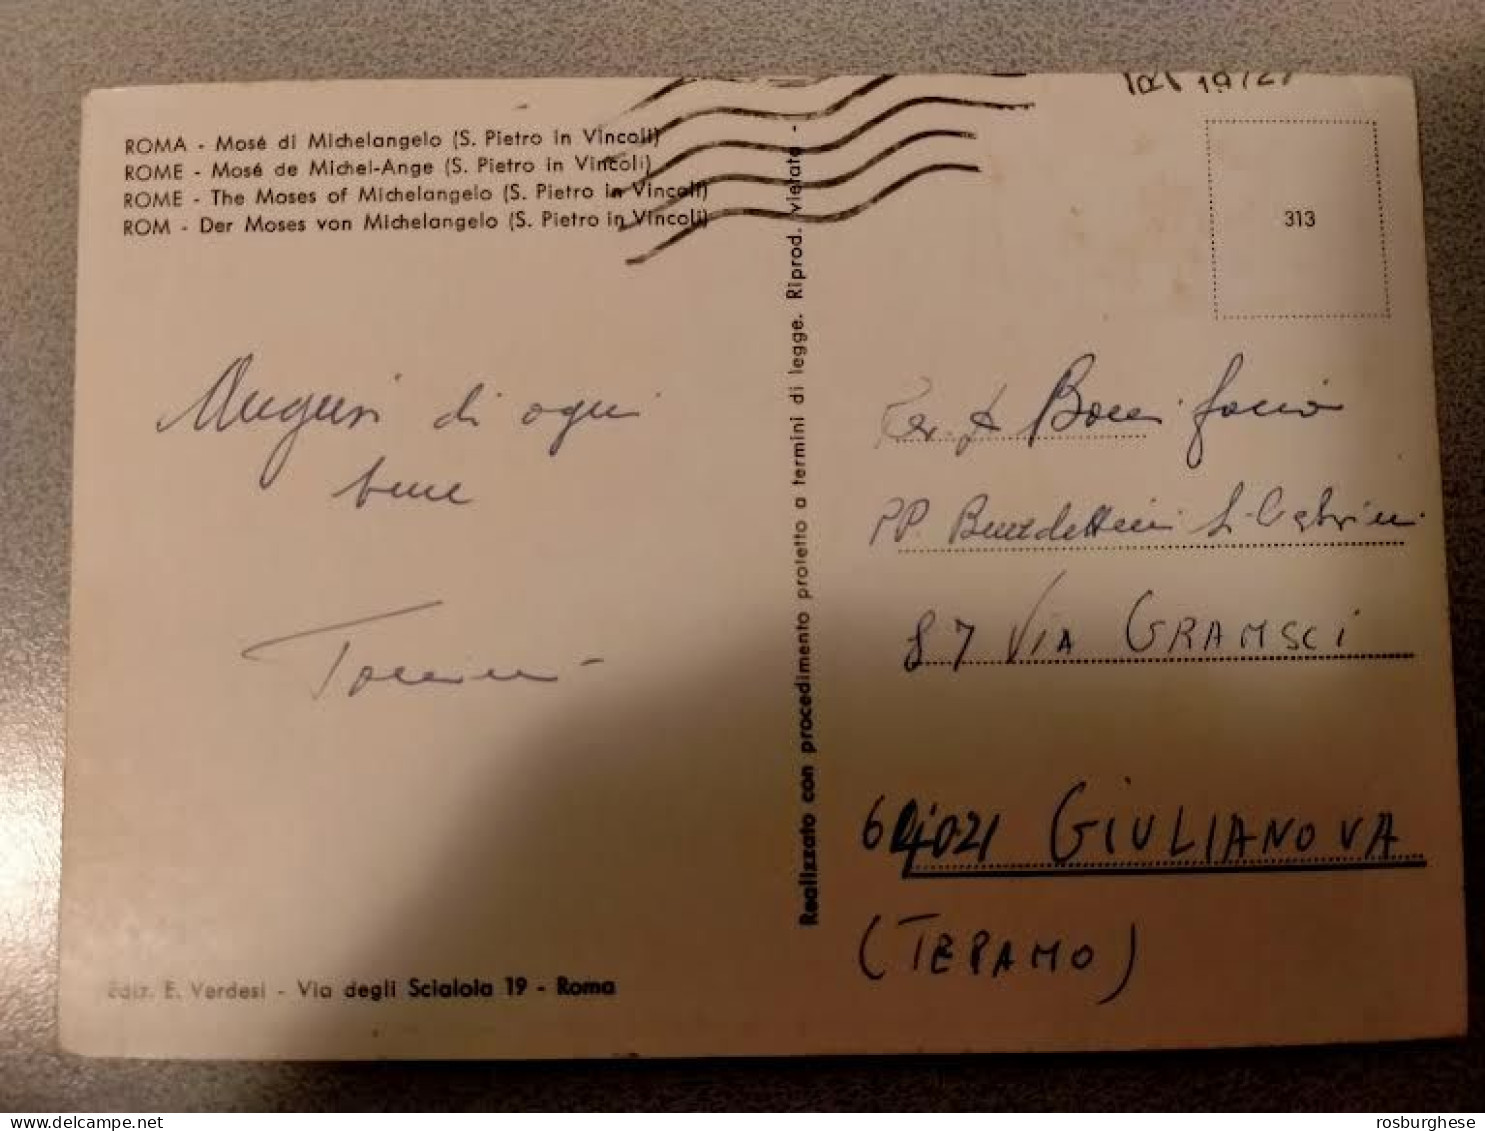 ROMA - Mosé di Michelangelo (S. Pietro in Vincoli)
ROME - Mosé de Michel-Ange (S. Pietro in Vincoli)
ROME - The Moses of Michelangelo (S. Pietro in Vincoli)
ROM - Der Moses von Michelangelo (S. Pietro in Vincoli)
Auguri di ogni
bene
Ediz. E. Verdesi - Via degli Scialoia 19 - Roma
Realizzato con procedimento protetto a termini di legge. Riprod. vietata -
313
Bonifacio
PP. Benedettini
87 VIA GRAMSCI
64021 GIULIANOVA
(TERAMO)
delcampe.net
rosburghese